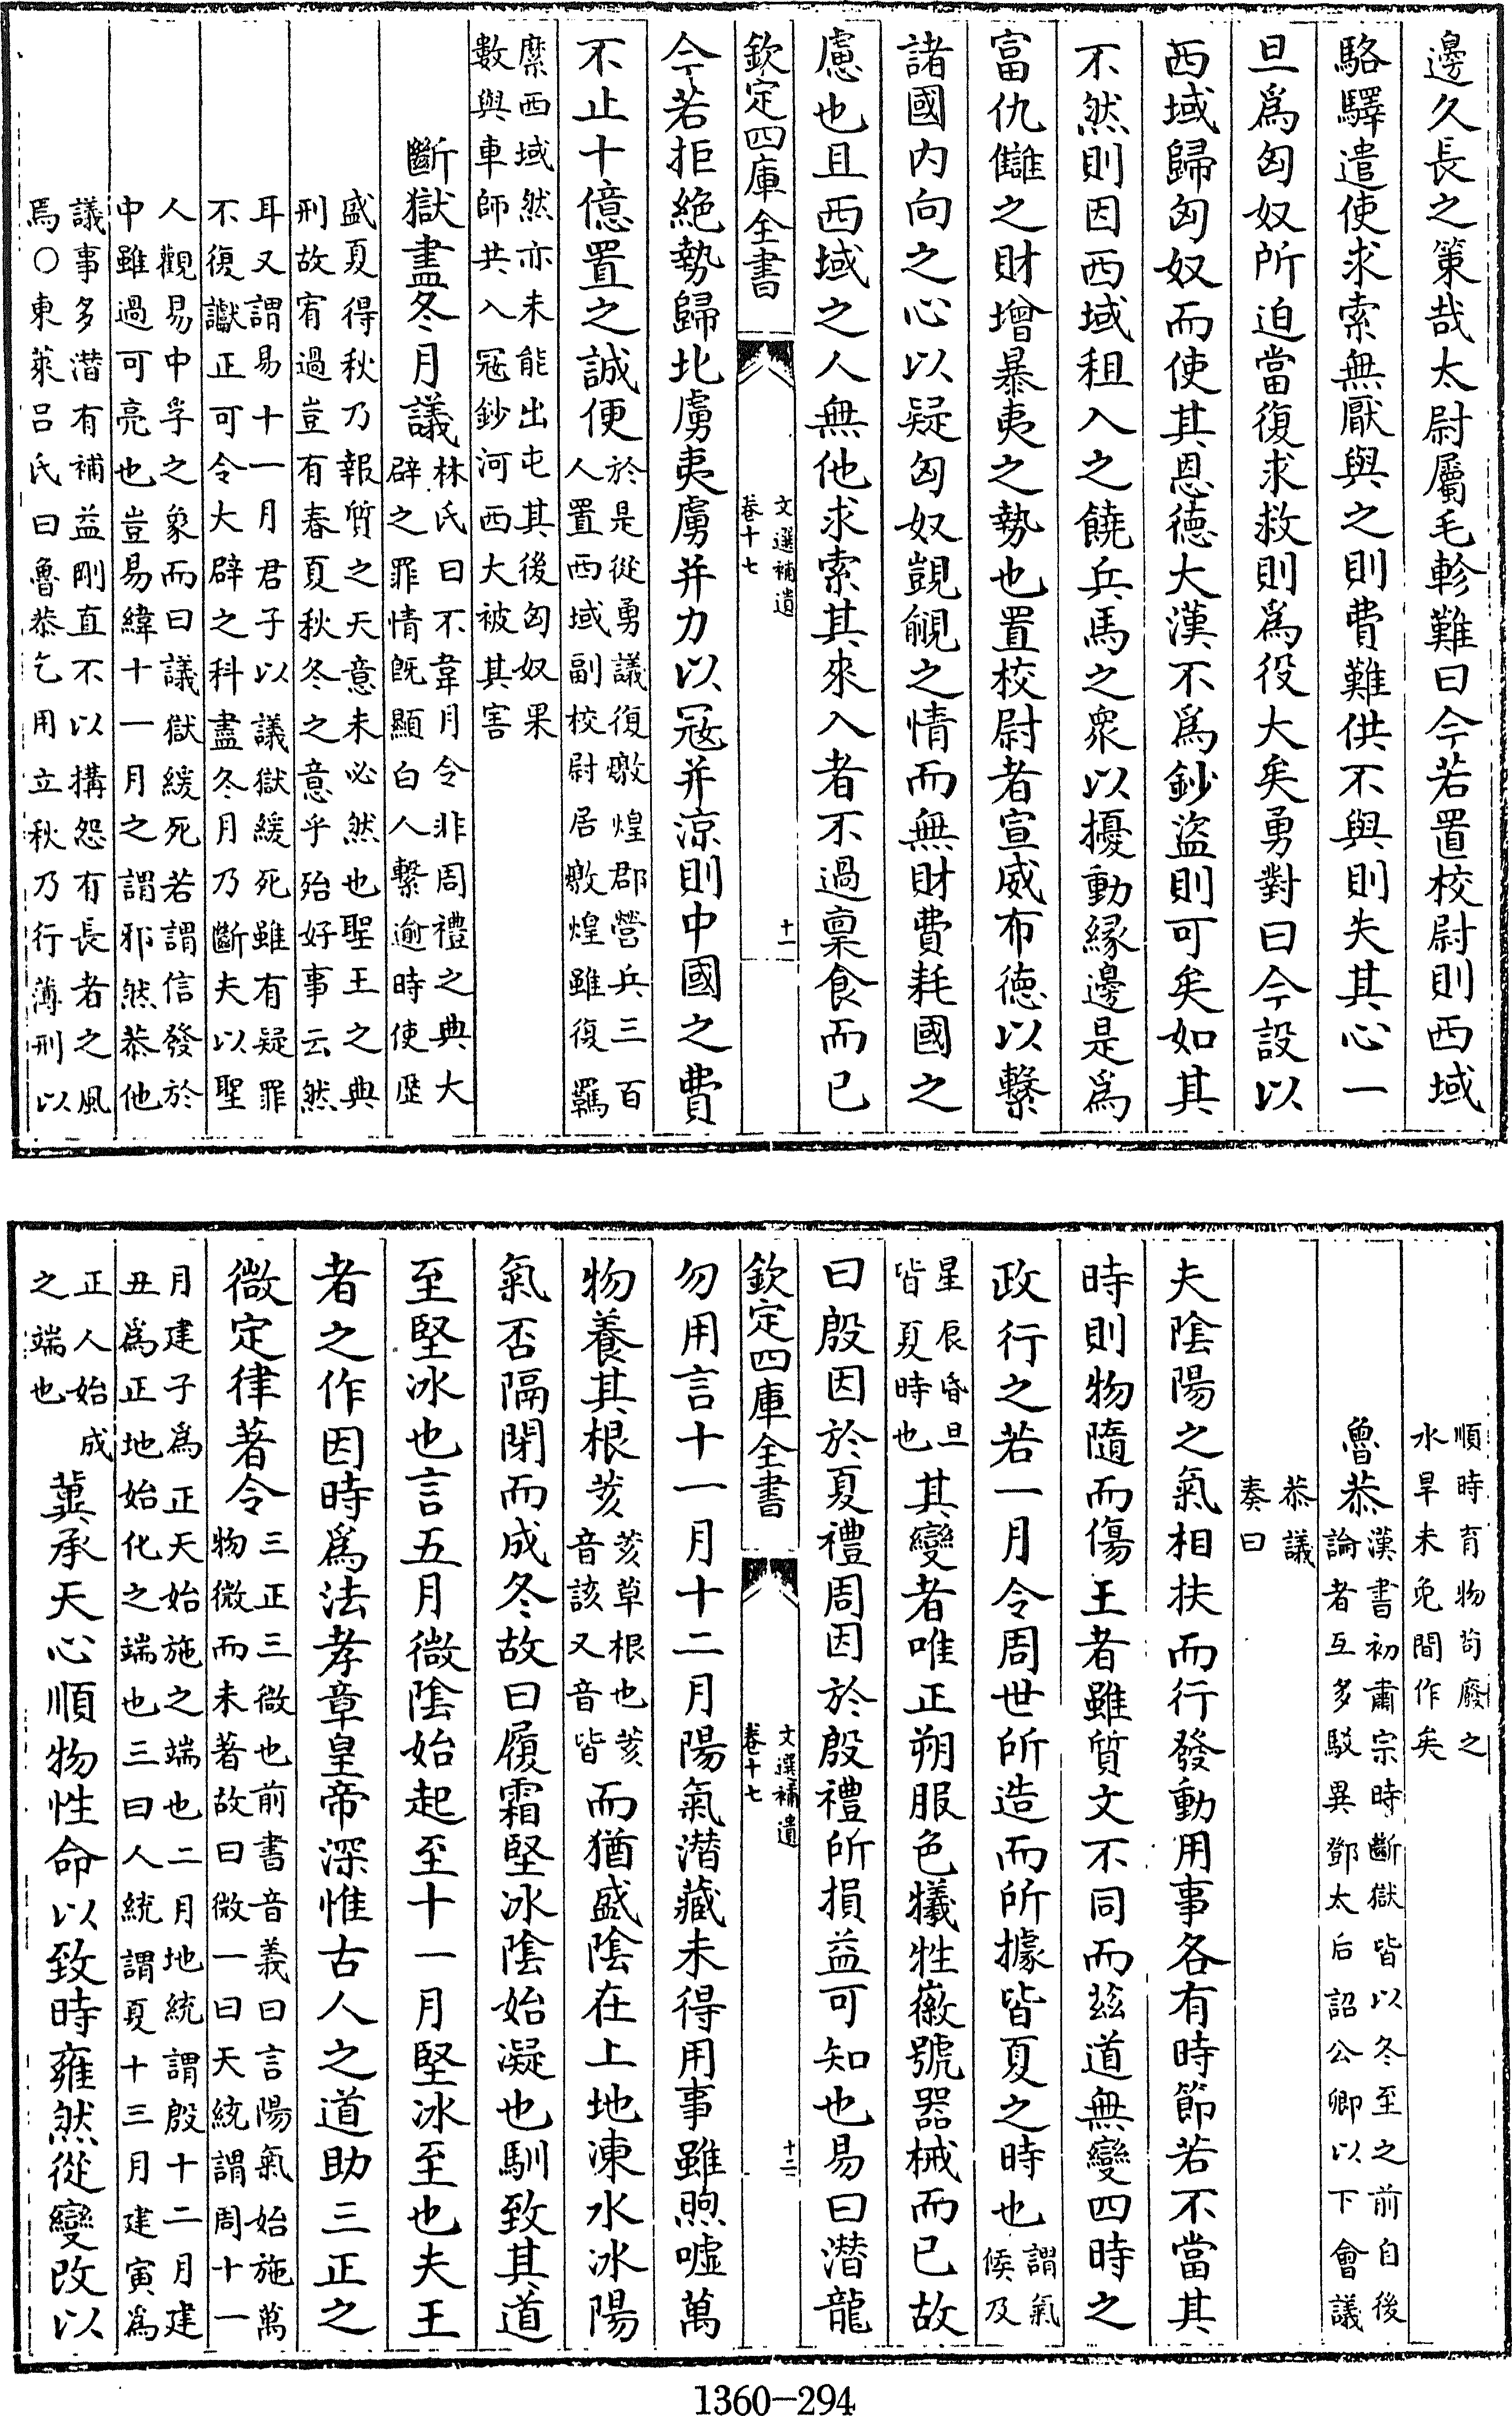 邊久長之策哉太尉屬毛軫難曰今若置校尉則西域
駱驛遣使求索無厭與之則費難供不與則失其心一
旦爲匈奴所迫當復求救則爲役大矣勇對曰今設以
西域歸匈奴而使其恩德大漢不爲鈔盜則可矣如其
不然則因西域租入之饒兵馬之衆以擾動緣邊是爲
富仇讎之財增暴夷之勢也置校尉者宣威布德以繫
諸國内向之心以疑匈奴覬覦之情而無財費耗國之
慮也且西域之人無他求索其來入者不過稟食而已
欽定四庫全書
文選補遺
卷十七
十一
今若拒絶勢歸北虜夷虜并力以冦并涼則中國之費
不止十億置之誠便
於是從勇議復燉煌郡營兵三百
人置西域副校尉居燉煌雖復羈
縻西域然亦未能出屯其後匈奴果
數與車師共入冦鈔河西大被其害
斷獄盡冬月議
林氏曰不韋月令非周禮之典大
辟之罪情旣顯白人繫逾時使歴
盛夏得秋乃報質之天意未必然也聖王之典
刑故宥過豈有春夏秋冬之意乎殆好事云然
耳又謂易十一月君子以議獄緩死雖有疑罪
不復讞正可令大辟之科盡冬月乃斷夫以聖
人觀易中孚之象而曰議獄緩死若謂信發於
中雖過可亮也豈易緯十一月之謂邪然恭他
議事多潛有補益剛直不以構怨有長者之風
焉○東萊呂氏曰魯恭乞用立秋乃行薄刑以
順時育物苟廢之
水旱未免間作矣
魯恭
漢書初肅宗時斷獄皆以冬至之前自後
論者互多駁異鄧太后詔公卿以下會議
恭議
奏曰
夫陰陽之氣相扶而行發動用事各有時節若不當其
時則物隨而傷王者雖質文不同而兹道無變四時之
政行之若一月令周世所造而所據皆夏之時也
謂氣
候及
星辰昏旦
皆夏時也
其變者唯正朔服色犧牲徽號器械而已故
曰殷因於夏禮周因於殷禮所損益可知也易曰潛龍
欽定四庫全書
文選補遺
卷十七
十二
勿用言十一月十二月陽氣潛藏未得用事雖煦噓萬
物養其根荄
荄草根也荄
音該又音皆
而猶盛陰在上地凍水冰陽
氣否隔閉而成冬故曰履霜堅冰陰始凝也馴致其道
至堅冰也言五月微陰始起至十一月堅冰至也夫王
者之作因時爲法孝章皇帝深惟古人之道助三正之
微定律著令
三正三微也前書音義曰言陽氣始施萬
物微而未著故曰微一曰天統謂周十一
月建子爲正天始施之端也二月地統謂殷十二月建
丑爲正地始化之端也三曰人統謂夏十三月建寅爲
正人始成
之端也
冀承天心順物性命以致時雍然從變改以
1360-294